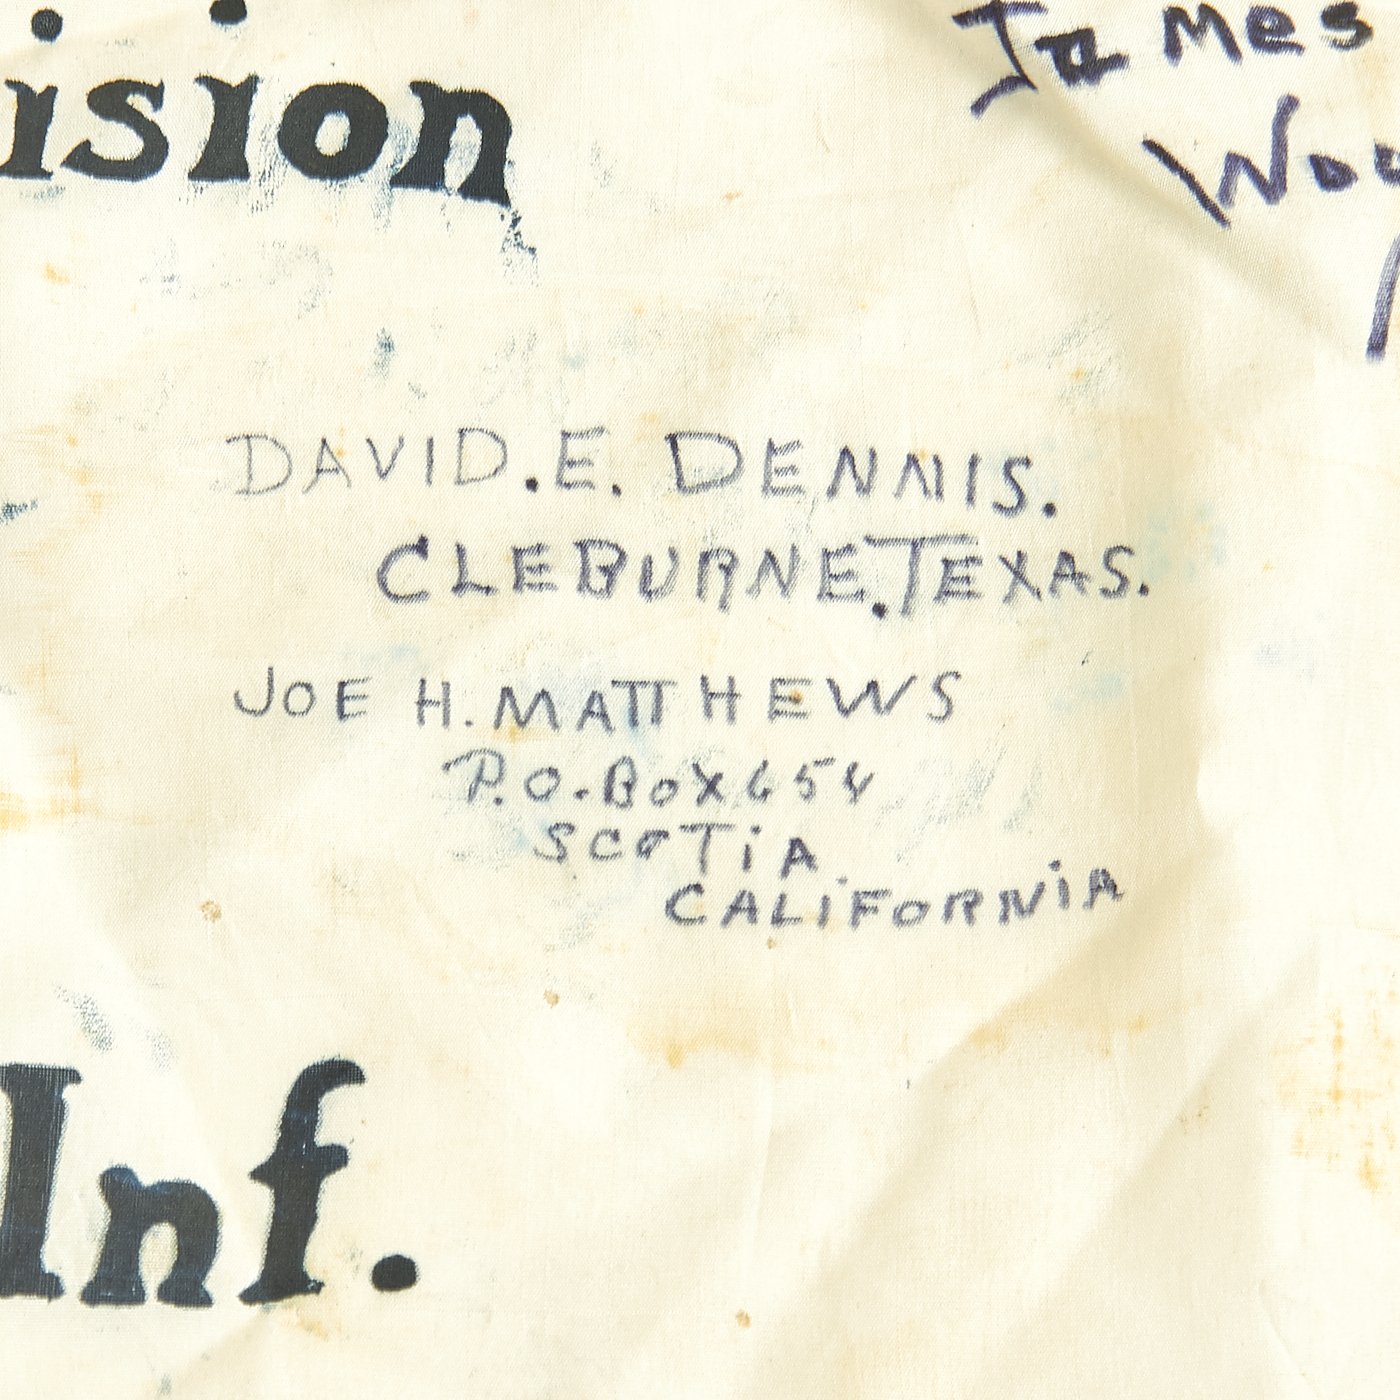 James
ision
DAVID.E. DENNIS.
CLEBURNE.TEXAS.
JOE H. MATTHEWS
P.O. BOX 654
SCOTiA
CALiFORNiA
Inf.